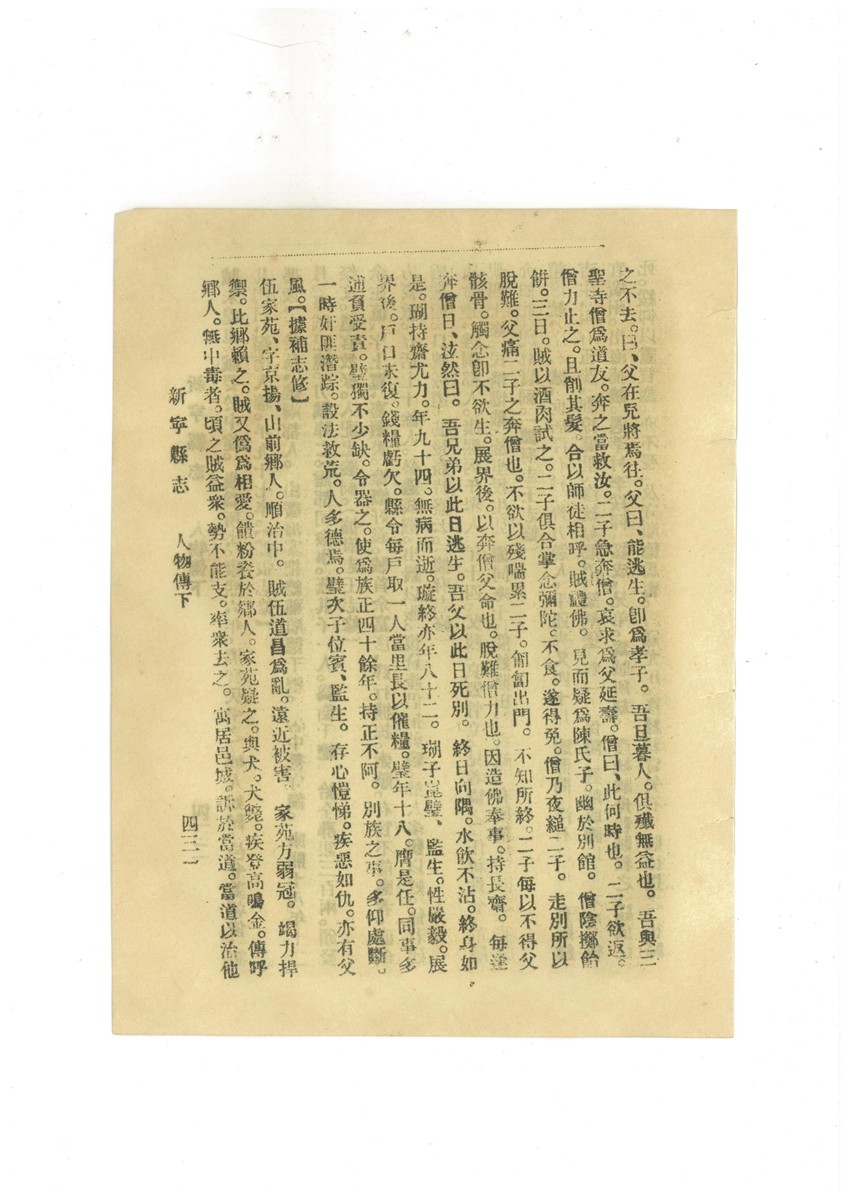 之不去。曰、父在兒將焉往。父曰、能逃生。卽爲孝子。吾旦暮人。俱殲無益也。吾與三
聖寺僧爲道友。奔之當救汝。二子急奔僧。哀求爲父延壽。僧曰、此何時也。二子欲返。
僧力止之。且削其髮。合以師徒相呼。賊禮佛。見而疑爲陳氏子。幽於別館。僧陰擲飴
餠。三日。賊以酒肉試之。二子俱合掌念彌陀。不食。遂得免。僧乃夜縋二子。走別所以
脫難。父痛二子之奔僧也。不欲以殘喘累二子。匍匐出門。不知所終。二子每以不得父
骸骨。觸念卽不欲生。展界後。以奔僧父命也。脫難僧力也。因造佛奉事。持長齋。每逢
奔僧日、泫然曰。吾兄弟以此日逃生。吾父以此日死別。終日向隅。水飲不沾。終身如
是。瑚持齋尤力。年九十四。無病而逝。璇終亦年八十二。瑚子崑璧、監生。性嚴毅。展
界後。戶口未復。錢糧虧欠。縣令每戶取一人當里長以催糧。璧年十八。膺是任。同事多
逋負受責。璧獨不少缺。令器之。使爲族正四十餘年。持正不阿。別族之事。多仰處斷。
一時奸匪潛踪。設法救荒。人多德焉。璧次子位賓、監生。存心愷悌。疾惡如仇。亦有父
風。【據補志修】
伍家苑、字京揚、山前鄉人。順治中。賊伍道昌爲亂。遠近被害。家苑方弱冠。竭力捍
禦。比鄉賴之。賊又僞爲相愛。饋粉餈於鄉人。家苑疑之。與犬。犬斃。疾登高鳴金。傳呼
鄉人。無中毒者。頃之賊益衆。勢不能支。率衆去之。寓居邑城。訴於當道。當道以治他
新寧縣志 人物傳下 四三一